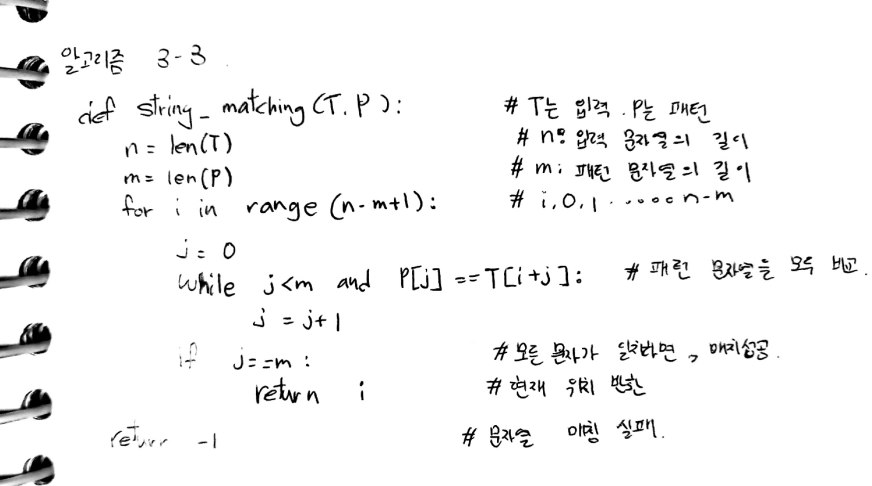 알고리즘 3-3
def string_matching(T, P): # T는 입력. P는 패턴
n = len(T) # n: 입력 문자열의 길이
m = len(P) # m: 패턴 문자열의 길이
for i in range (n-m+1): # i, 0, 1 ...... n-m
j = 0
while j<m and P[j] == T[i+j]: # 패턴 문자열을 모두 비교.
j = j+1
if j==m : # 모든 문자가 일치하면, 매치성공.
return i # 현재 위치 반환
return -1 # 문자열 매칭 실패.